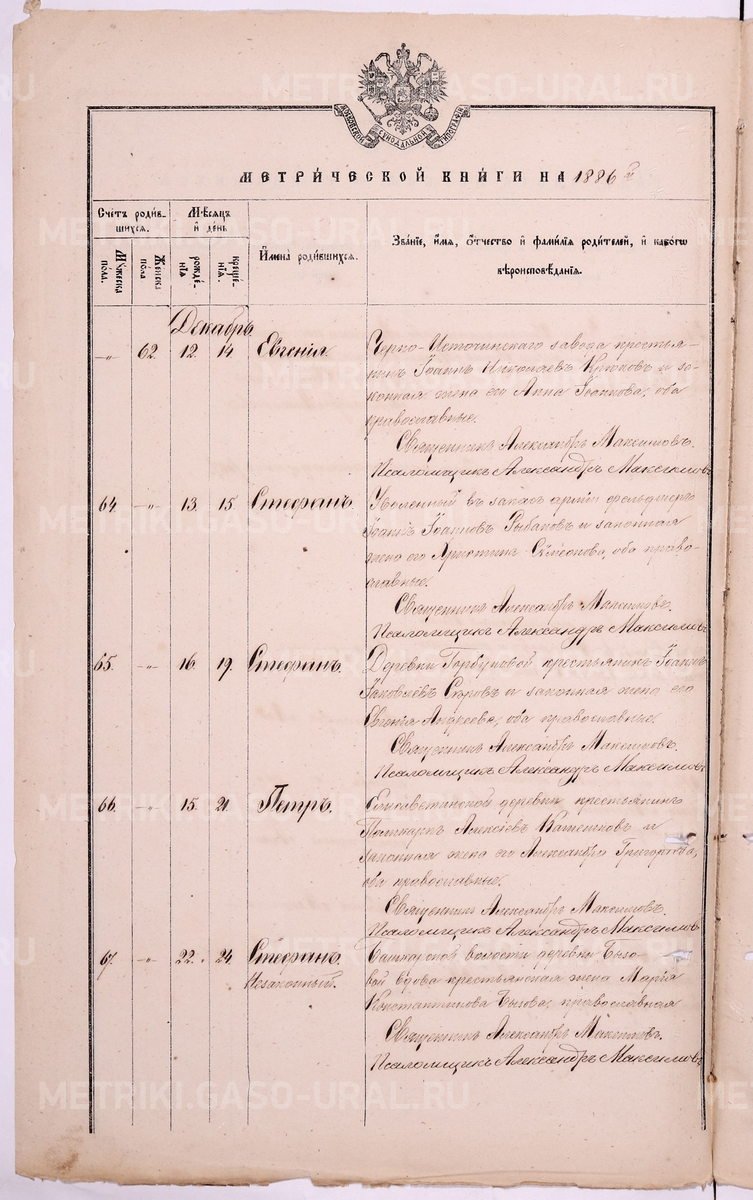 МОСКОВСКОЙ СѴНОДАЛЬНОЙ ТИПОГРАФІИ
МЕТРИ́ЧЕСКОЙ КНИ́ГИ НА 1886 й
Счетъ роди́в-
шихся.
Мѣсяцъ
и́ де́нь
Му́жеска
пола.
Же́нска
пола
рожде́-
нїѧ
креще́-
нїѧ.
И҆мена̀ роди́вшихся.
Зва́нїе, и҆́мя, ѻ҆́тчество и҆ фами́лїя роди́телей, и҆ како́гѡ
вѣроисповѣ́данїя.
Декабрь
—„— 62. 12. 14. Евгенія. Черно-Источинскаго завода крестья-
нинъ Іоаннъ Николаевъ Крюковъ и за-
конная жена его Анна Іоаннова, оба
православные.
Священникъ Александръ Максимовъ.
Псаломщикъ Александръ Максимовъ
64 —„— 13. 15. Стефанъ. Уволенный въ запасъ арміи фельдшеръ
Іоаннъ Іоанновъ Рыбаковъ и законная
жена его Христина Симеонова, оба право-
славные.
Священникъ Александръ Максимовъ.
Псаломщикъ Александръ Максимовъ
65. —„— 16. 19. Стефанъ. Деревни Горбуновой крестьянинъ Іоаннъ
Іаковлевъ Серовъ и законная жена его
Евгенія Андреева, оба православные.
Священникъ Александръ Максимовъ.
Псаломщикъ Александръ Максимовъ
66. —„— 15. 21. Петръ. Елисаветинской деревни крестьянинъ
Алексіевъ и
законная жена его Александра Григорьева,
оба православные.
Священникъ Александръ Максимовъ.
Псаломщикъ Александръ Максимовъ
67 —„— 22. 24. Стефанъ. Башкарской волости деревни Бызо-
Незаконный. вой вдова крестьянская жена Марія
Константинова Бызова, православная
Священникъ Александръ Максимовъ.
Псаломщикъ Александръ Максимовъ
METRIKI.GASO-URAL.RU